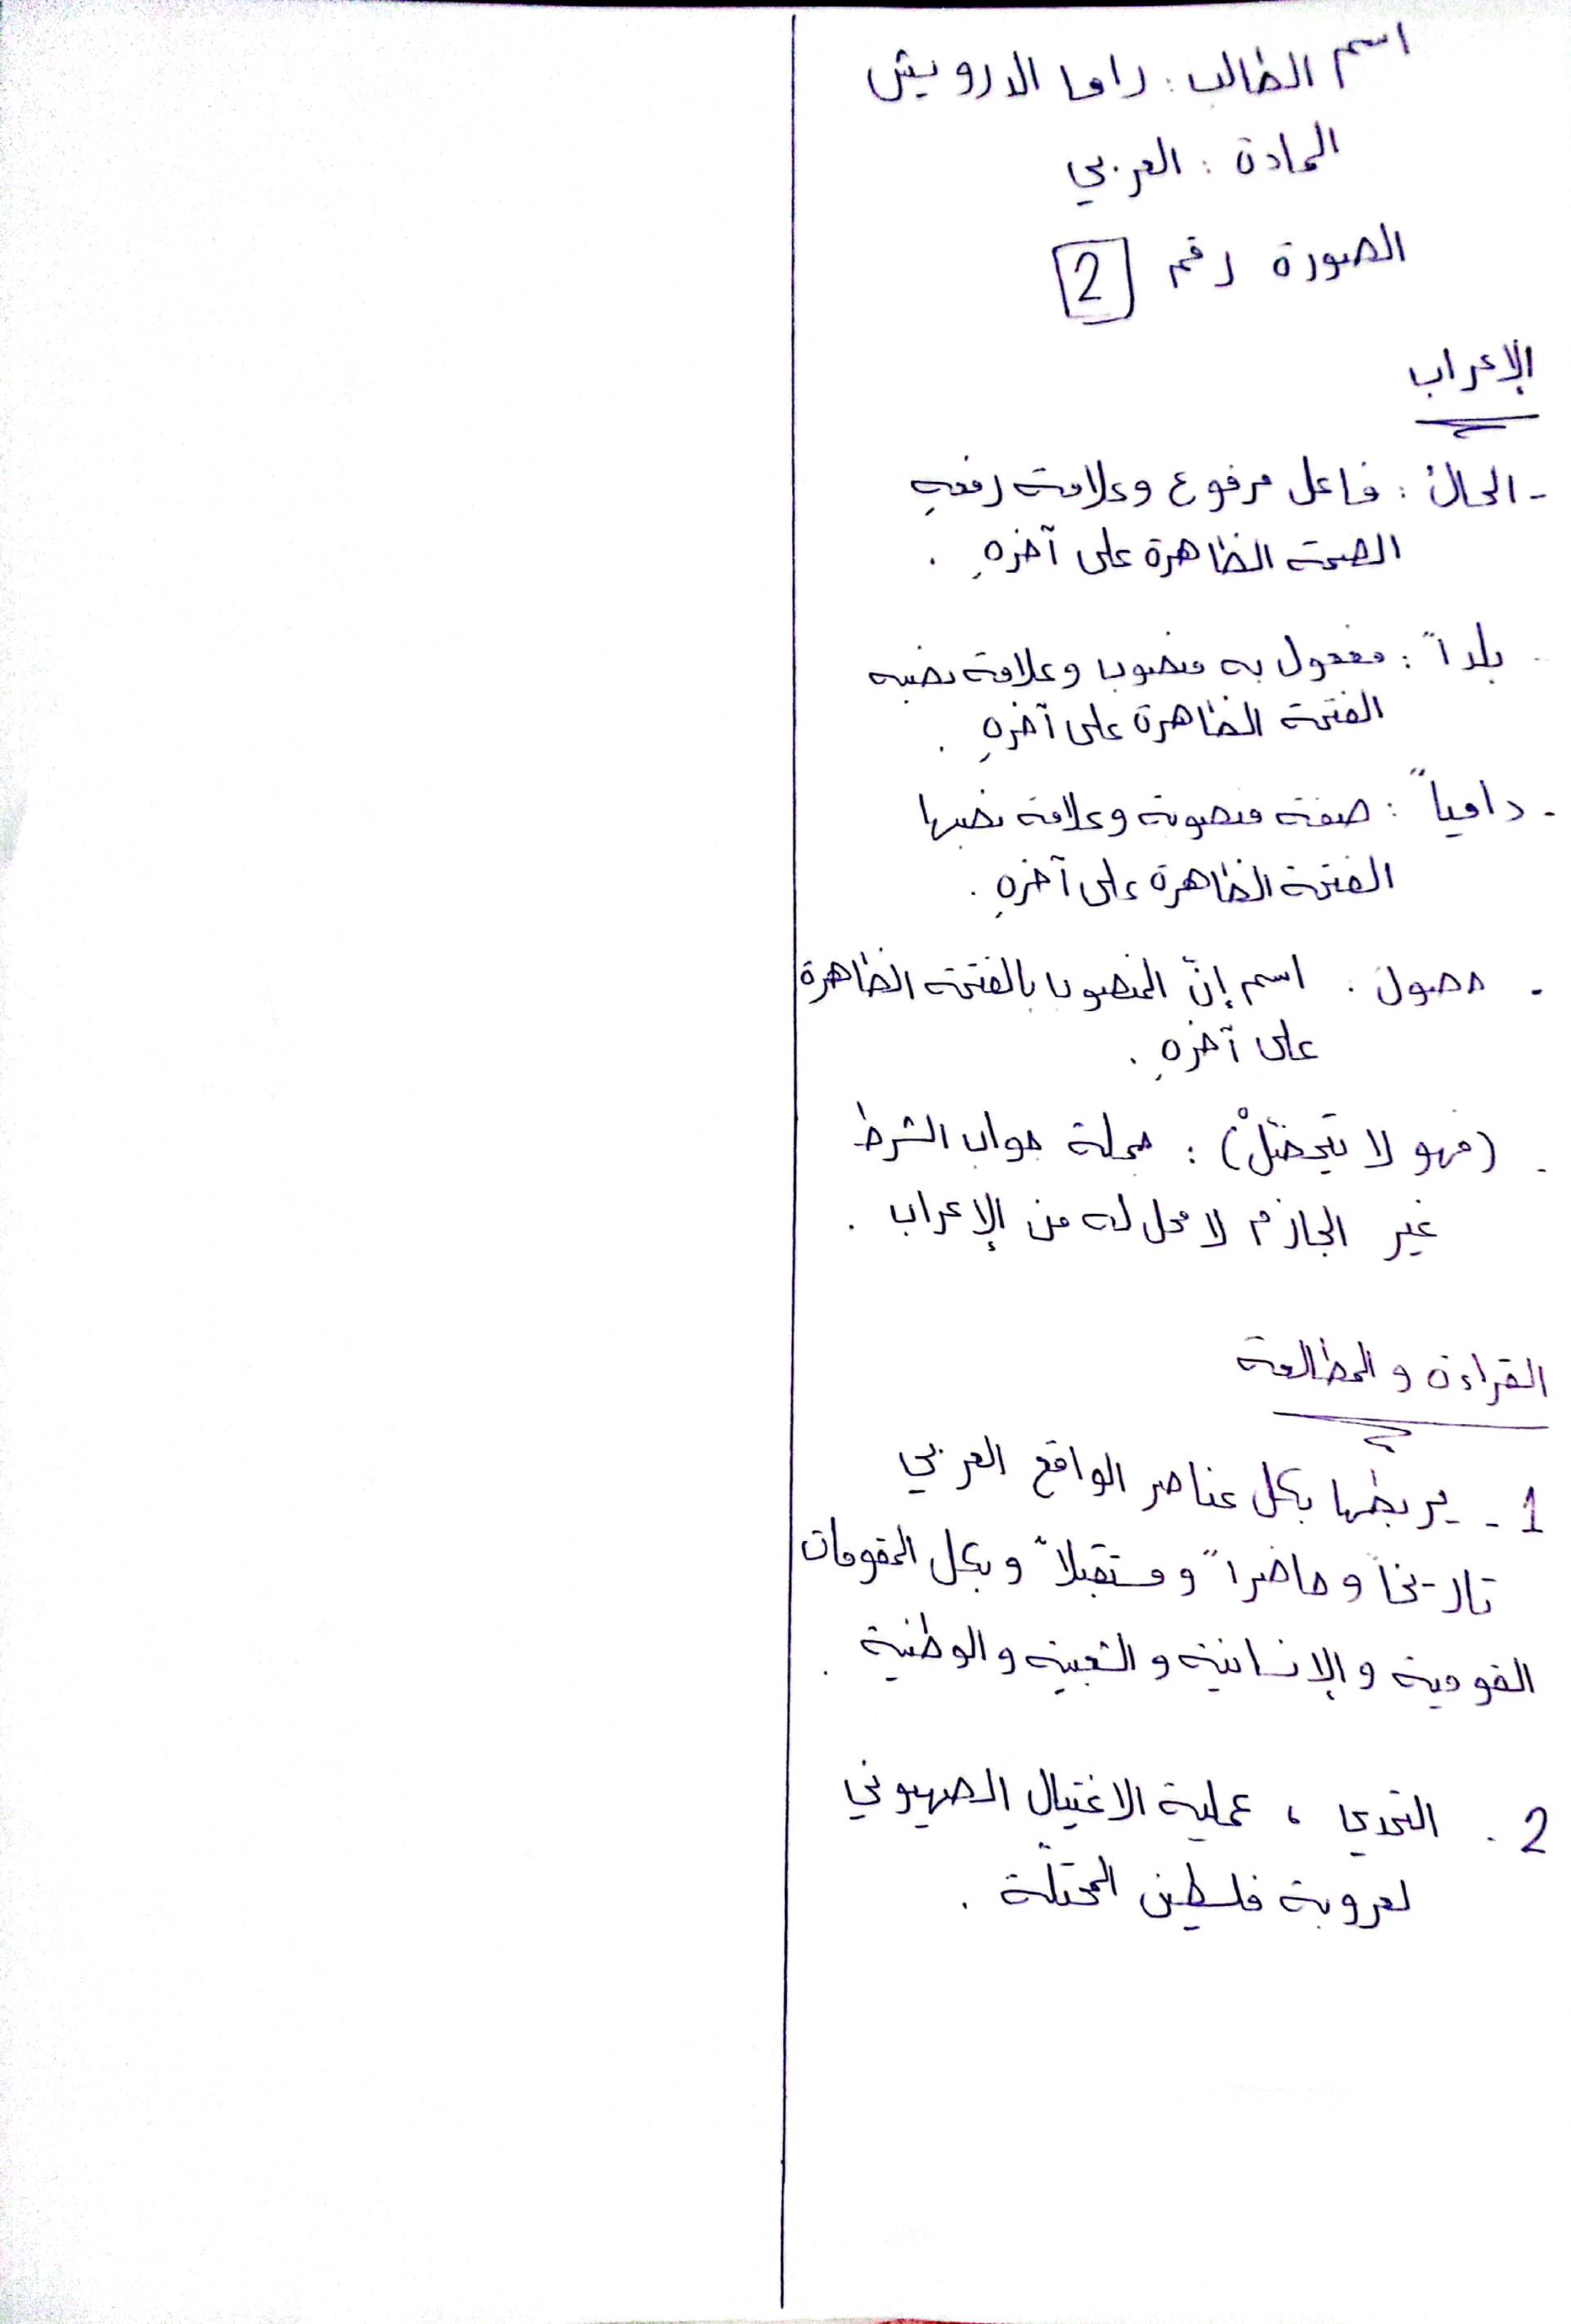 اسم الطالب : راما الدرويش
المادة : العربي
الصورة رقم 2
الإعراب
- الحالُ : فاعل مرفوع وعلامة رفعهِ
الضمة الظاهرة على آخرهِ .
- بلداً : مفعول به منصوب وعلامة نصبه
الفتحة الظاهرة على آخرهِ .
- دامياً : صفة منصوبة وعلامة نصبها
الفتحة الظاهرة على آخرهِ .
- حصولَ . اسم إنّ المنصوب بالفتحة الظاهرة
على آخرهِ .
- (فهو لا ) : جملة جواب الشرط
غير الجازم لا محل له من الإعراب .
القراءة و المطالعة
1 - يربطها بكل عناصر الواقع العربي
تاريخاً و حاضراً و مستقبلاً و بكل المقومات
القومية و الإنسانية و الشعبية و الوطنية .
2 . التحدي ، عملية الاغتيال الصهيوني
لعروبة فلسطين المحتلّة .